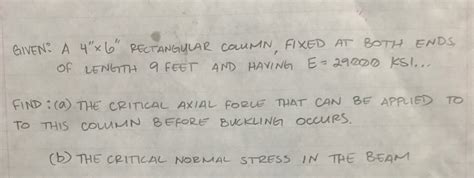 GIVEN: A 4"x6" RECTANGULAR COLUMN, FIXED AT BOTH ENDS
OF LENGTH 9 FEET AND HAVING E = 29000 KSI...
FIND: (a) THE CRITICAL AXIAL FORCE THAT CAN BE APPLIED TO
TO THIS COLUMN BEFORE BUCKLING OCCURS.
(b) THE CRITICAL NORMAL STRESS IN THE BEAM